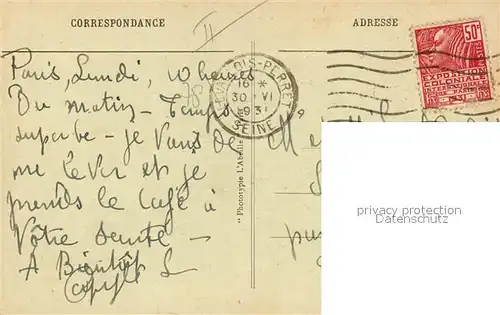 CORRESPONDANCE
ADRESSE
II
Paris, Lundi, 10 heures
Du matin - Temps
superbe - je Viens de
me lever et je
prends le café à
Votre santé -
A Bientôt
LEVALLOIS-PERRET
16 *
30 VI
1931
SEINE
50c
POSTES
EXPOSITION
COLONIALE
INTERNATIONALE
PARIS
1931
"Phototypie L'Abeille
privacy protection
Datenschutz